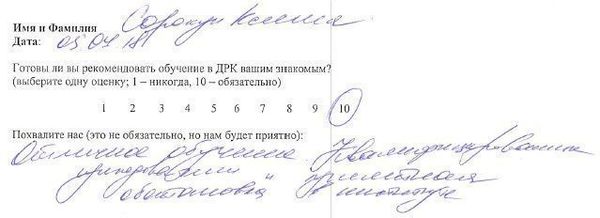 Имя и Фамилия Сорокун Ксения
Дата: 05 04 18
Готовы ли вы рекомендовать обучение в ДРК вашим знакомым?
(выберите одну оценку; 1 – никогда, 10 – обязательно)
1 2 3 4 5 6 7 8 9 10
Похвалите нас (это не обязательно, но нам будет приятно):
Отличное обучение. Квалифицированные
преподаватели приятная
обстановка в институте